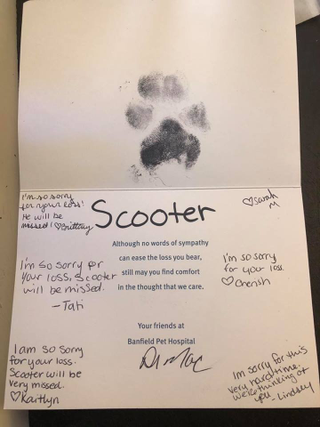 I'm so sorry
for your loss!
He will be
missed! ♡Brittany
♡Sarah
M
Scooter
Although no words of sympathy
can ease the loss you bear,
still may you find comfort
in the thought that we care.
I'm so sorry for
your loss, Scooter
will be missed.
- Tati
I'm so sorry
for your loss.
♡Cherish
Your friends at
Banfield Pet Hospital
Dr Mac
I am so sorry
for your loss.
Scooter will be
very missed.
♡Kaitlyn
I'm sorry for this
very hard time
we're thinking of
you. - Lindsey